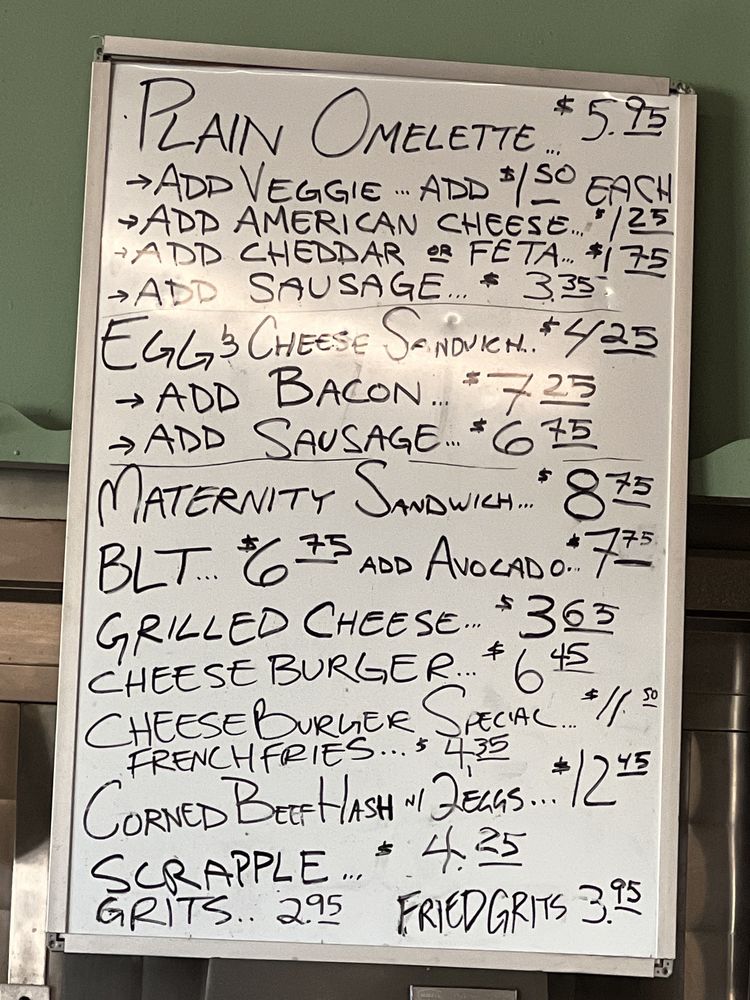 PLAIN OMELETTE... $5.95
→ADD VEGGIE... ADD $1 50 EACH
→ADD AMERICAN CHEESE... $1 25
→ADD CHEDDAR OR FETA... $1 75
→ADD SAUSAGE... $ 3.35
EGG & CHEESE SANDWICH.. $4 25
→ADD BACON... $7 25
→ADD SAUSAGE... $6 75
MATERNITY SANDWICH... $8 75
BLT... $6 75 ADD AVOCADO... $7 75
GRILLED CHEESE... $3 65
CHEESE BURGER... $6 45
CHEESE BURGER SPECIAL... $11.50
FRENCH FRIES... $4.35
CORNED BEEF HASH W/ 2 EGGS... $12 45
SCRAPPLE... $4.25
GRITS.. 2.95 FRIED GRITS 3.95